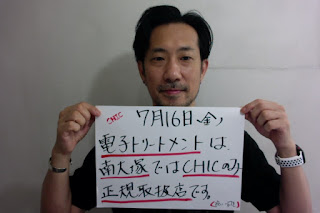 CHIC
7月16日(金)
電子トリートメントは、
南大塚ではCHICのみ
正規取扱店です。